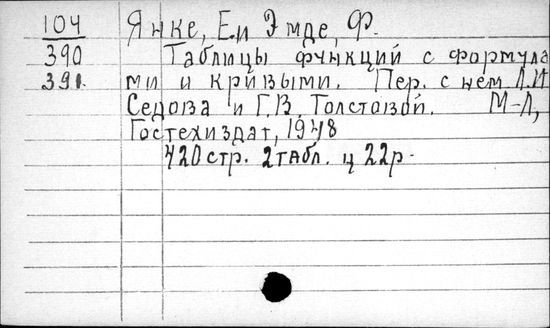 104 Янке, Е. и Эмде, Ф.
390 Таблицы функций с формула
391. ми и кривыми. Пер. с нем Л.И
Седова и Г.В. Толстовой. М-Л,
Гостехиздат, 1948
420 стр. 2 табл. ц 22 р.